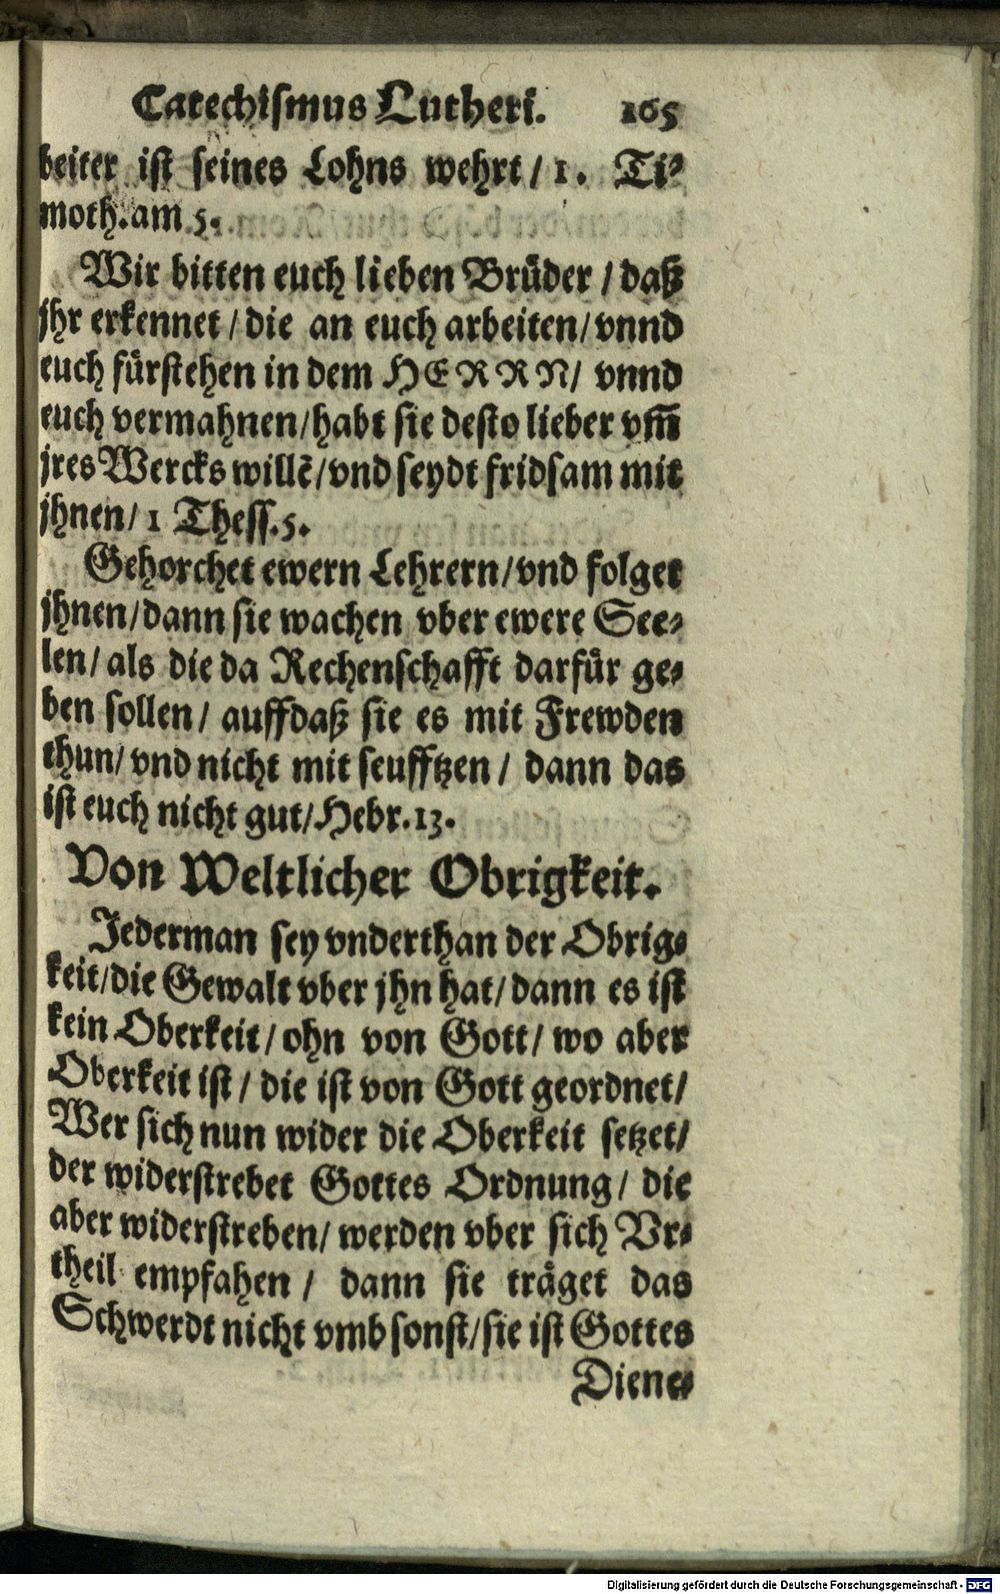 Catechismus Lutheri. 165
beiter ist seines Lohns wehrt / 1. Ti⸗
moth. am 5.
Wir bitten euch lieben Brüder / daß
jhr erkennet / die an euch arbeiten / vnnd
euch fürstehen in dem HERRN / vnnd
euch vermahnen / habt sie desto lieber vm̃
jres Wercks willẽ / vnd seydt fridsam mit
jhnen / 1 Thess. 5.
Gehorchet ewern Lehrern / vnd folget
jhnen / dann sie wachen vber ewere See⸗
len / als die da Rechenschafft darfür ge⸗
ben sollen / auffdaß sie es mit Frewden
thun / vnd nicht mit seufftzen / dann das
ist euch nicht gut / Hebr. 13.
Von Weltlicher Obrigkeit.
Jederman sey vnderthan der Obrig⸗
keit / die Gewalt vber jhn hat / dann es ist
kein Oberkeit / ohn von Gott / wo aber
Oberkeit ist / die ist von Gott geordnet /
Wer sich nun wider die Oberkeit setzet /
der widerstrebet Gottes Ordnung / die
aber widerstreben / werden vber sich Vr⸗
theil empfahen / dann sie träget das
Schwerdt nicht vmb sonst / sie ist Gottes
Diene⸗
Digitalisierung gefördert durch die Deutsche Forschungsgemeinschaft - DFG